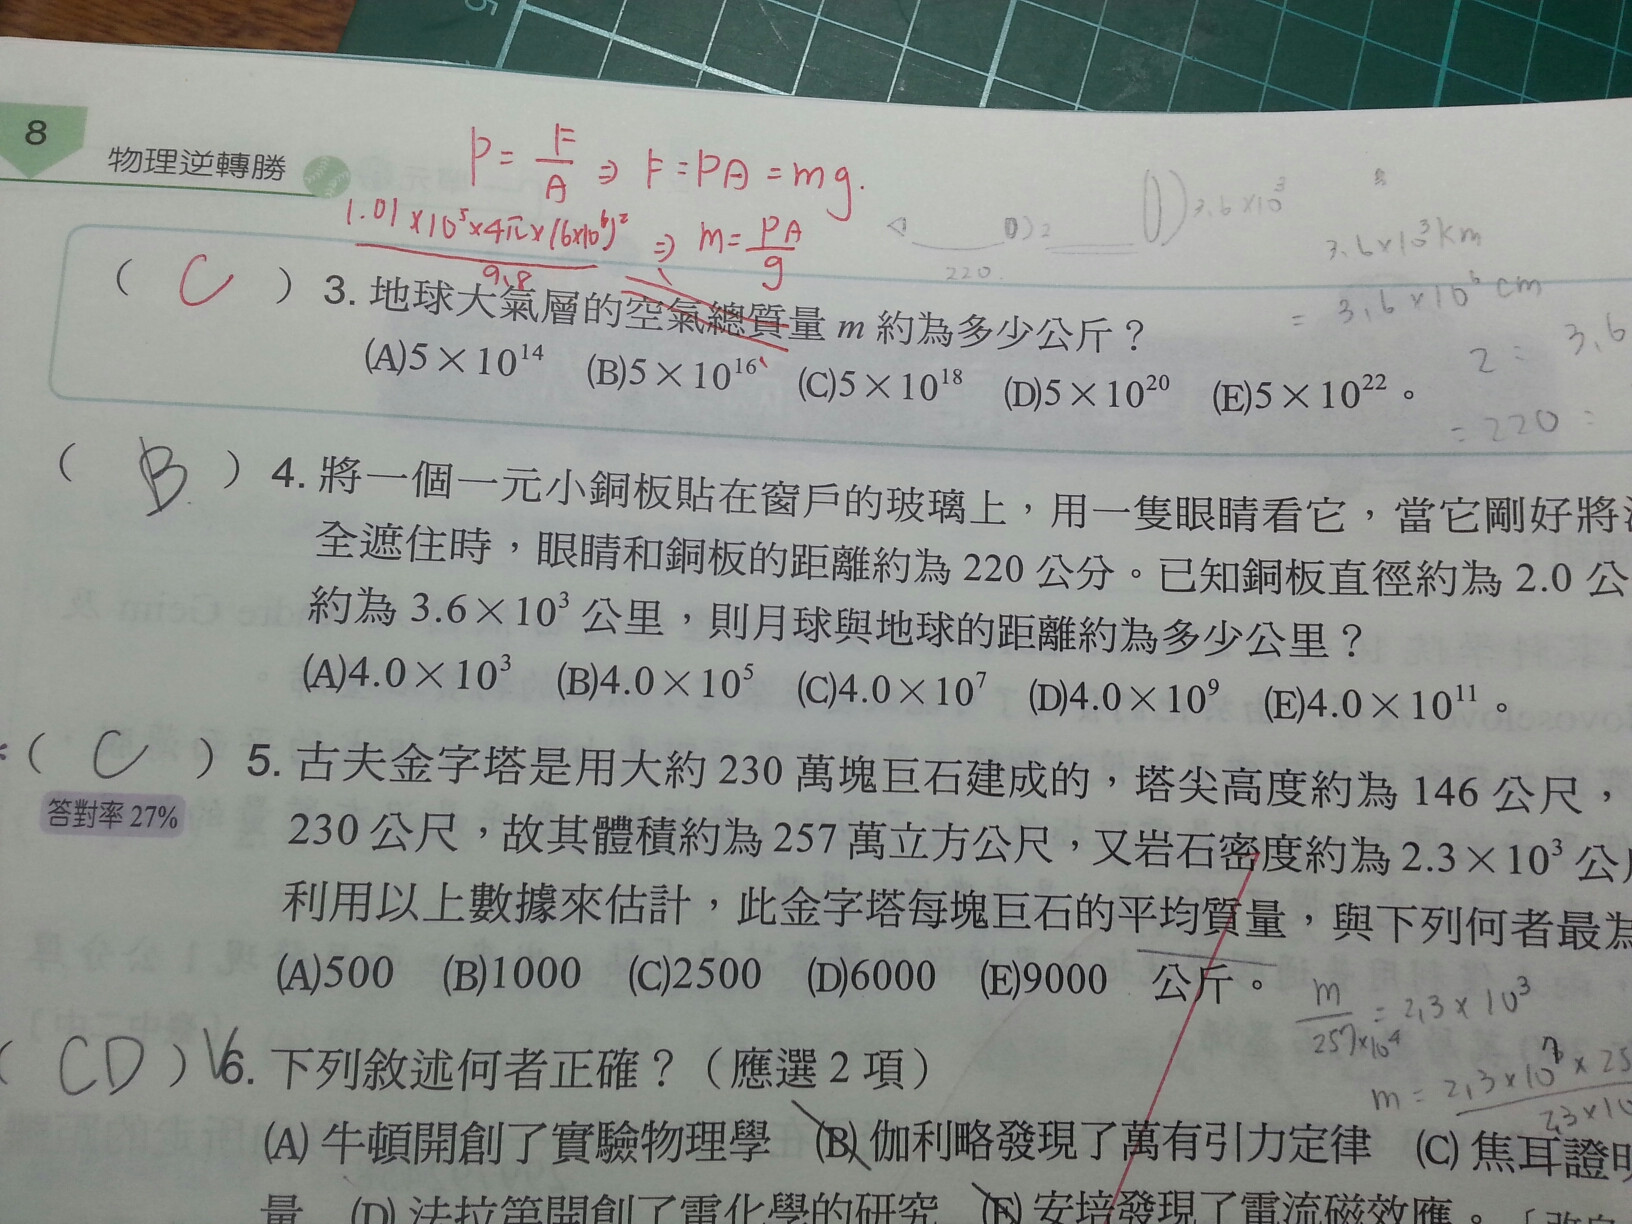 8
物理逆轉勝
P = F/A ⇒ F = PA = mg.
1.01×10⁵×4π×(6×10⁶)²/9.8 ⇒ m = PA/g
3.6×10³
3.6×10³km
= 3.6×10⁸cm
220
2 = 3.6
= 220 =
( C ) 3. 地球大氣層的空氣總質量 m 約為多少公斤？
(A)5×10¹⁴ (B)5×10¹⁶ (C)5×10¹⁸ (D)5×10²⁰ (E)5×10²²。
( B ) 4. 將一個一元小銅板貼在窗戶的玻璃上，用一隻眼睛看它，當它剛好將
全遮住時，眼睛和銅板的距離約為 220 公分。已知銅板直徑約為 2.0 公
約為 3.6×10³ 公里，則月球與地球的距離約為多少公里？
(A)4.0×10³ (B)4.0×10⁵ (C)4.0×10⁷ (D)4.0×10⁹ (E)4.0×10¹¹。
*( C ) 5. 古夫金字塔是用大約 230 萬塊巨石建成的，塔尖高度約為 146 公尺，
答對率 27%
230 公尺，故其體積約為 257 萬立方公尺，又岩石密度約為 2.3×10³ 公
利用以上數據來估計，此金字塔每塊巨石的平均質量，與下列何者最為
(A)500 (B)1000 (C)2500 (D)6000 (E)9000 公斤。
m/257×10⁴ = 2.3×10³
( CD ) V 6. 下列敘述何者正確？（應選 2 項）
(A) 牛頓開創了實驗物理學 (B) 伽利略發現了萬有引力定律 (C) 焦耳證明
量 (D) 法拉第開創了電化學的研究 (E) 安培發現了電流磁效應。